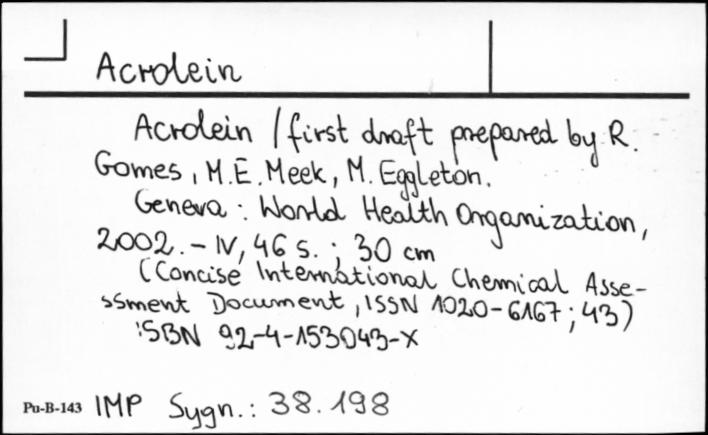 Acrolein
Acrolein / first draft prepared by R.
Gomes, M.E. Meek, M. Eggleton.
Geneva : World Health Organization,
2002. - IV, 46 s. ; 30 cm
(Concise International Chemical Asse-
ssment Document, ISSN 1020-6167; 43)
ISBN 92-4-153043-X
Pu-B-143 IMP Sygn.: 38.198